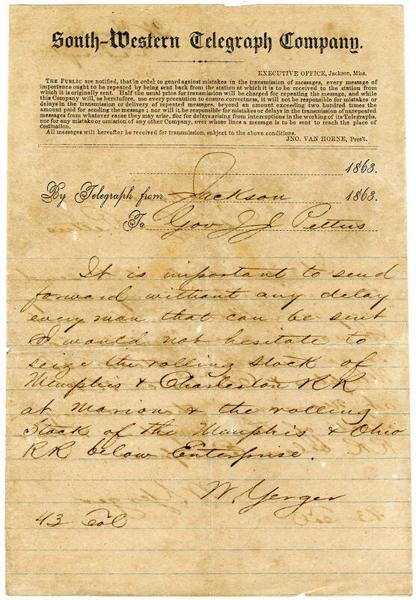 South-Western Telegraph Company.
EXECUTIVE OFFICE, Jackson, Miss.
THE PUBLIC are notified, that in order to guard against mistakes in the transmission of messages, every message of
importance ought to be repeated by being sent back from the station at which it is to be received to the station from
which it is originally sent. Half the usual price for transmission will be charged for repeating the message, and while
this Company will, as heretofore, use every precaution to ensure correctness, it will not be responsible for mistakes or
delays in the transmission or delivery of repeated messages, beyond an amount exceeding two hundred times the
amount paid for sending the message; nor will it be responsible for mistakes or delays in the transmission of unrepeated
messages from whatever cause they may arise, nor for delays arising from interruptions in the working of its Telegraphs,
nor for any mistake or omission of any other Company, over whose lines a message is to be sent to reach the place of
destination.
All messages will hereafter be received for transmission, subject to the above conditions.
JNO. VAN HORNE, Pres't.
1863.
By Telegraph from Jackson 1863.
To Gov J J Pettus
It is important to send
forward without any delay
every man that can be sent
I would not hesitate to
seize the rolling stock of
Memphis & Charleston RR
at Marion & the rolling
Stock of the Memphis & Ohio
RR below Enterprise.
W. Yerger
43 Col